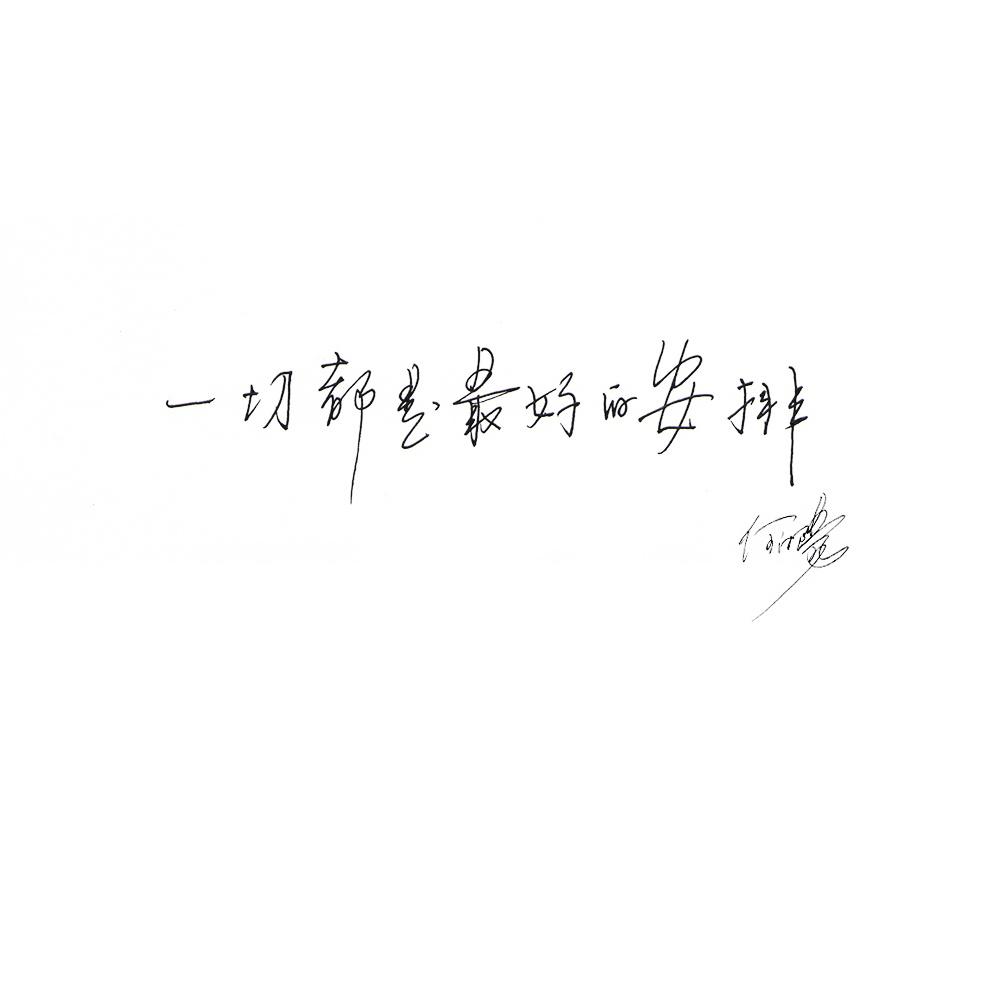 一切都是最好的安排
何